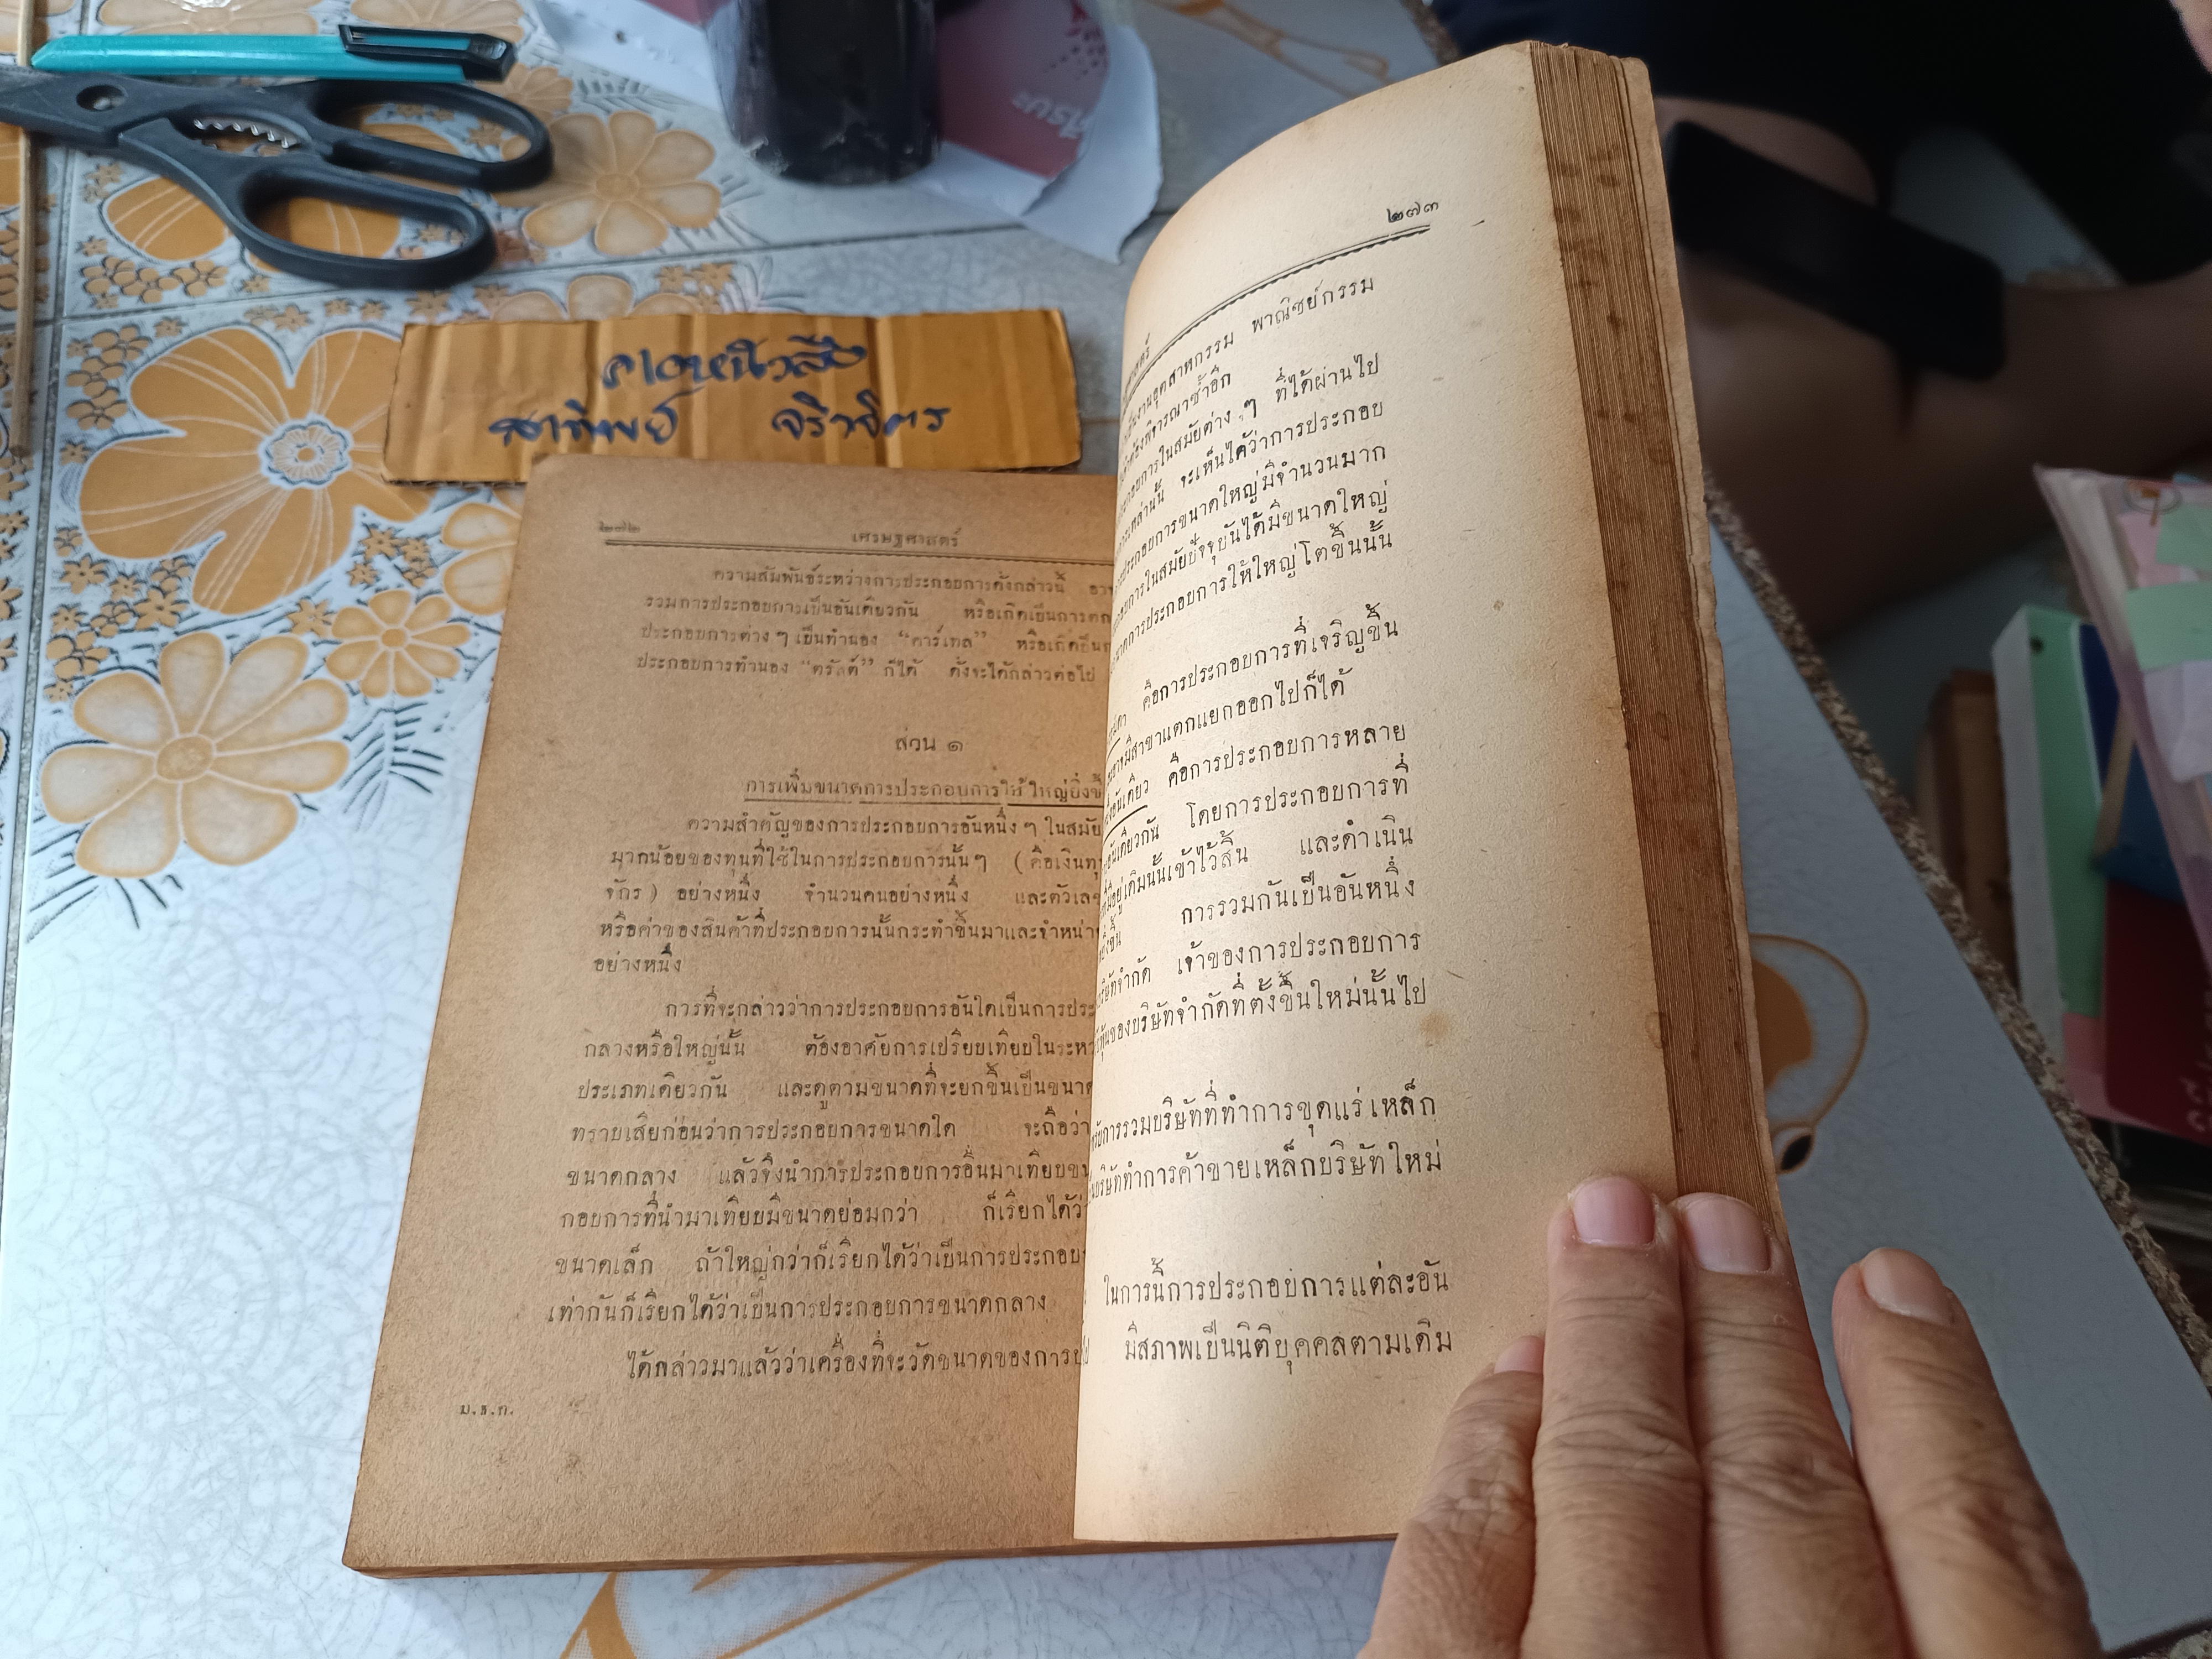 สาทิพย์ จริวจิตร
๒๗๒
เศรษฐศาสตร์
ความสัมพันธ์ระหว่างการประกอบการดังกล่าวนี้
รวมการประกอบการเป็นอันเดียวกัน หรือเกิดเป็นการ
ประกอบการต่าง ๆ เป็นทำนอง “คาร์เทล” หรือเกิดเป็น
ประกอบการทำนอง “ตรัสต์” ก็ได้ ดั่งจะได้กล่าวต่อไป
ส่วน ๑
การเพิ่มขนาดการประกอบการให้ใหญ่ยิ่งขึ้
ความสำคัญของการประกอบการอันหนึ่ง ๆ ในสมัย
มากน้อยของทุนที่ใช้ในการประกอบการนั้นๆ (คือเงินทุ
จักร) อย่างหนึ่ง จำนวนคนอย่างหนึ่ง และตัวเลข
หรือค่าของสินค้าที่ประกอบการนั้นกระทำขึ้นมาและจำหน่า
อย่างหนึ่ง
การที่จะกล่าวว่าการประกอบการอันใดเป็นการประ
กลางหรือใหญ่นั้น ต้องอาศัยการเปรียบเทียบในระหว
ประเภทเดียวกัน และดูตามขนาดที่จะยกขึ้นเป็นขนาด
ทราบเสียก่อนว่าการประกอบการขนาดใด จะถือว่า
ขนาดกลาง แล้วจึงนำการประกอบการอื่นมาเทียบขน
กอบการที่นำมาเทียบมีขนาดย่อมกว่า ก็เรียกได้ว่
ขนาดเล็ก ถ้าใหญ่กว่าก็เรียกได้ว่าเป็นการประกอบ
เท่ากันก็เรียกได้ว่าเป็นการประกอบการขนาดกลาง
ได้กล่าวมาแล้วว่าเครื่องที่จะวัดขนาดของการป
ม.ธ.ก.
๒๗๓
งานอุตสาหกรรม พาณิชย์กรรม
ต้องพิจารณาซ้ำอีก
ประกอบการในสมัยต่าง ๆ ที่ได้ผ่านไป
เหล่านั้น จะเห็นได้ว่าการประกอบ
ประกอบการขนาดใหญ่มีจำนวนมาก
กอบการในสมัยปัจจุบันได้มีขนาดใหญ่
นาดการประกอบการให้ใหญ่โตขึ้นนั้น
คือการประกอบการที่เจริญขึ้น
อาจมีสาขาแตกแยกออกไปก็ได้
อันเดียว คือการประกอบการหลาย
อันเดียวกัน โดยการประกอบการที่
อยู่เดิมนั้นเข้าไว้สิ้น และดำเนิน
การรวมกันเป็นอันหนึ่ง
บริษัทจำกัด เจ้าของการประกอบการ
หุ้นของบริษัทจำกัดที่ตั้งขึ้นใหม่นั้นไป
การรวมบริษัทที่ทำการขุดแร่เหล็ก
บริษัททำการค้าขายเหล็กบริษัทใหม่
ในการนี้การประกอบการแต่ละอัน
มีสภาพเป็นนิติบุคคลตามเดิม